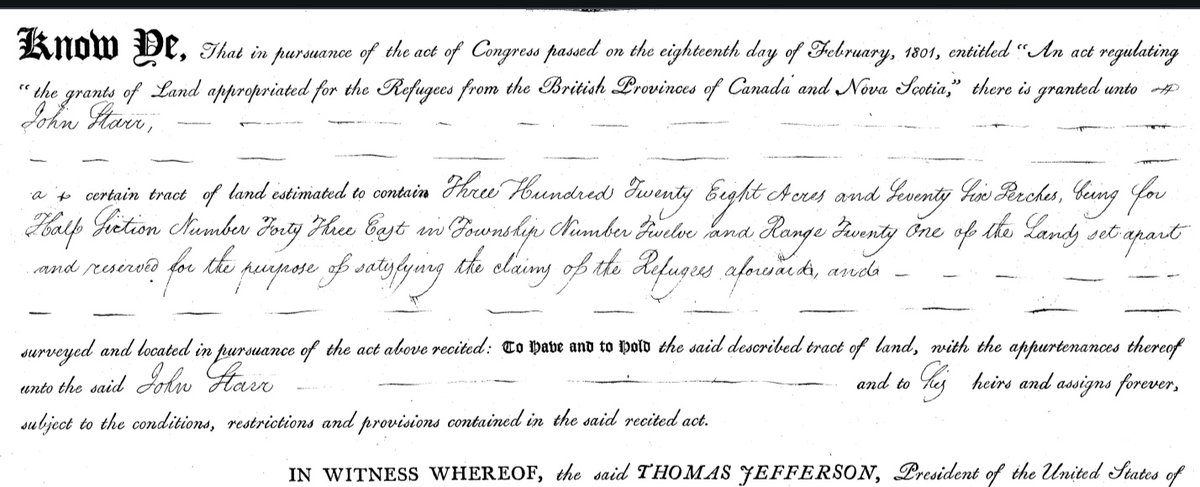 Know Ye, That in pursuance of the act of Congress passed on the eighteenth day of February, 1801, entitled “An act regulating
“the grants of Land appropriated for the Refugees from the British Provinces of Canada and Nova Scotia,” there is granted unto
John Starr,
a certain tract of land estimated to contain Three Hundred Twenty Eight Acres and Seventy Six Perches, being for
Half Section Number Forty Three East in Township Number Twelve and Range Twenty One of the Lands set apart
and reserved for the purpose of satisfying the claims of the Refugees aforesaid, and
surveyed and located in pursuance of the act above recited: To Have and to Hold the said described tract of land, with the appurtenances thereof
unto the said John Starr and to his heirs and assigns forever,
subject to the conditions, restrictions and provisions contained in the said recited act.
IN WITNESS WHEREOF, the said THOMAS JEFFERSON, President of the United States of